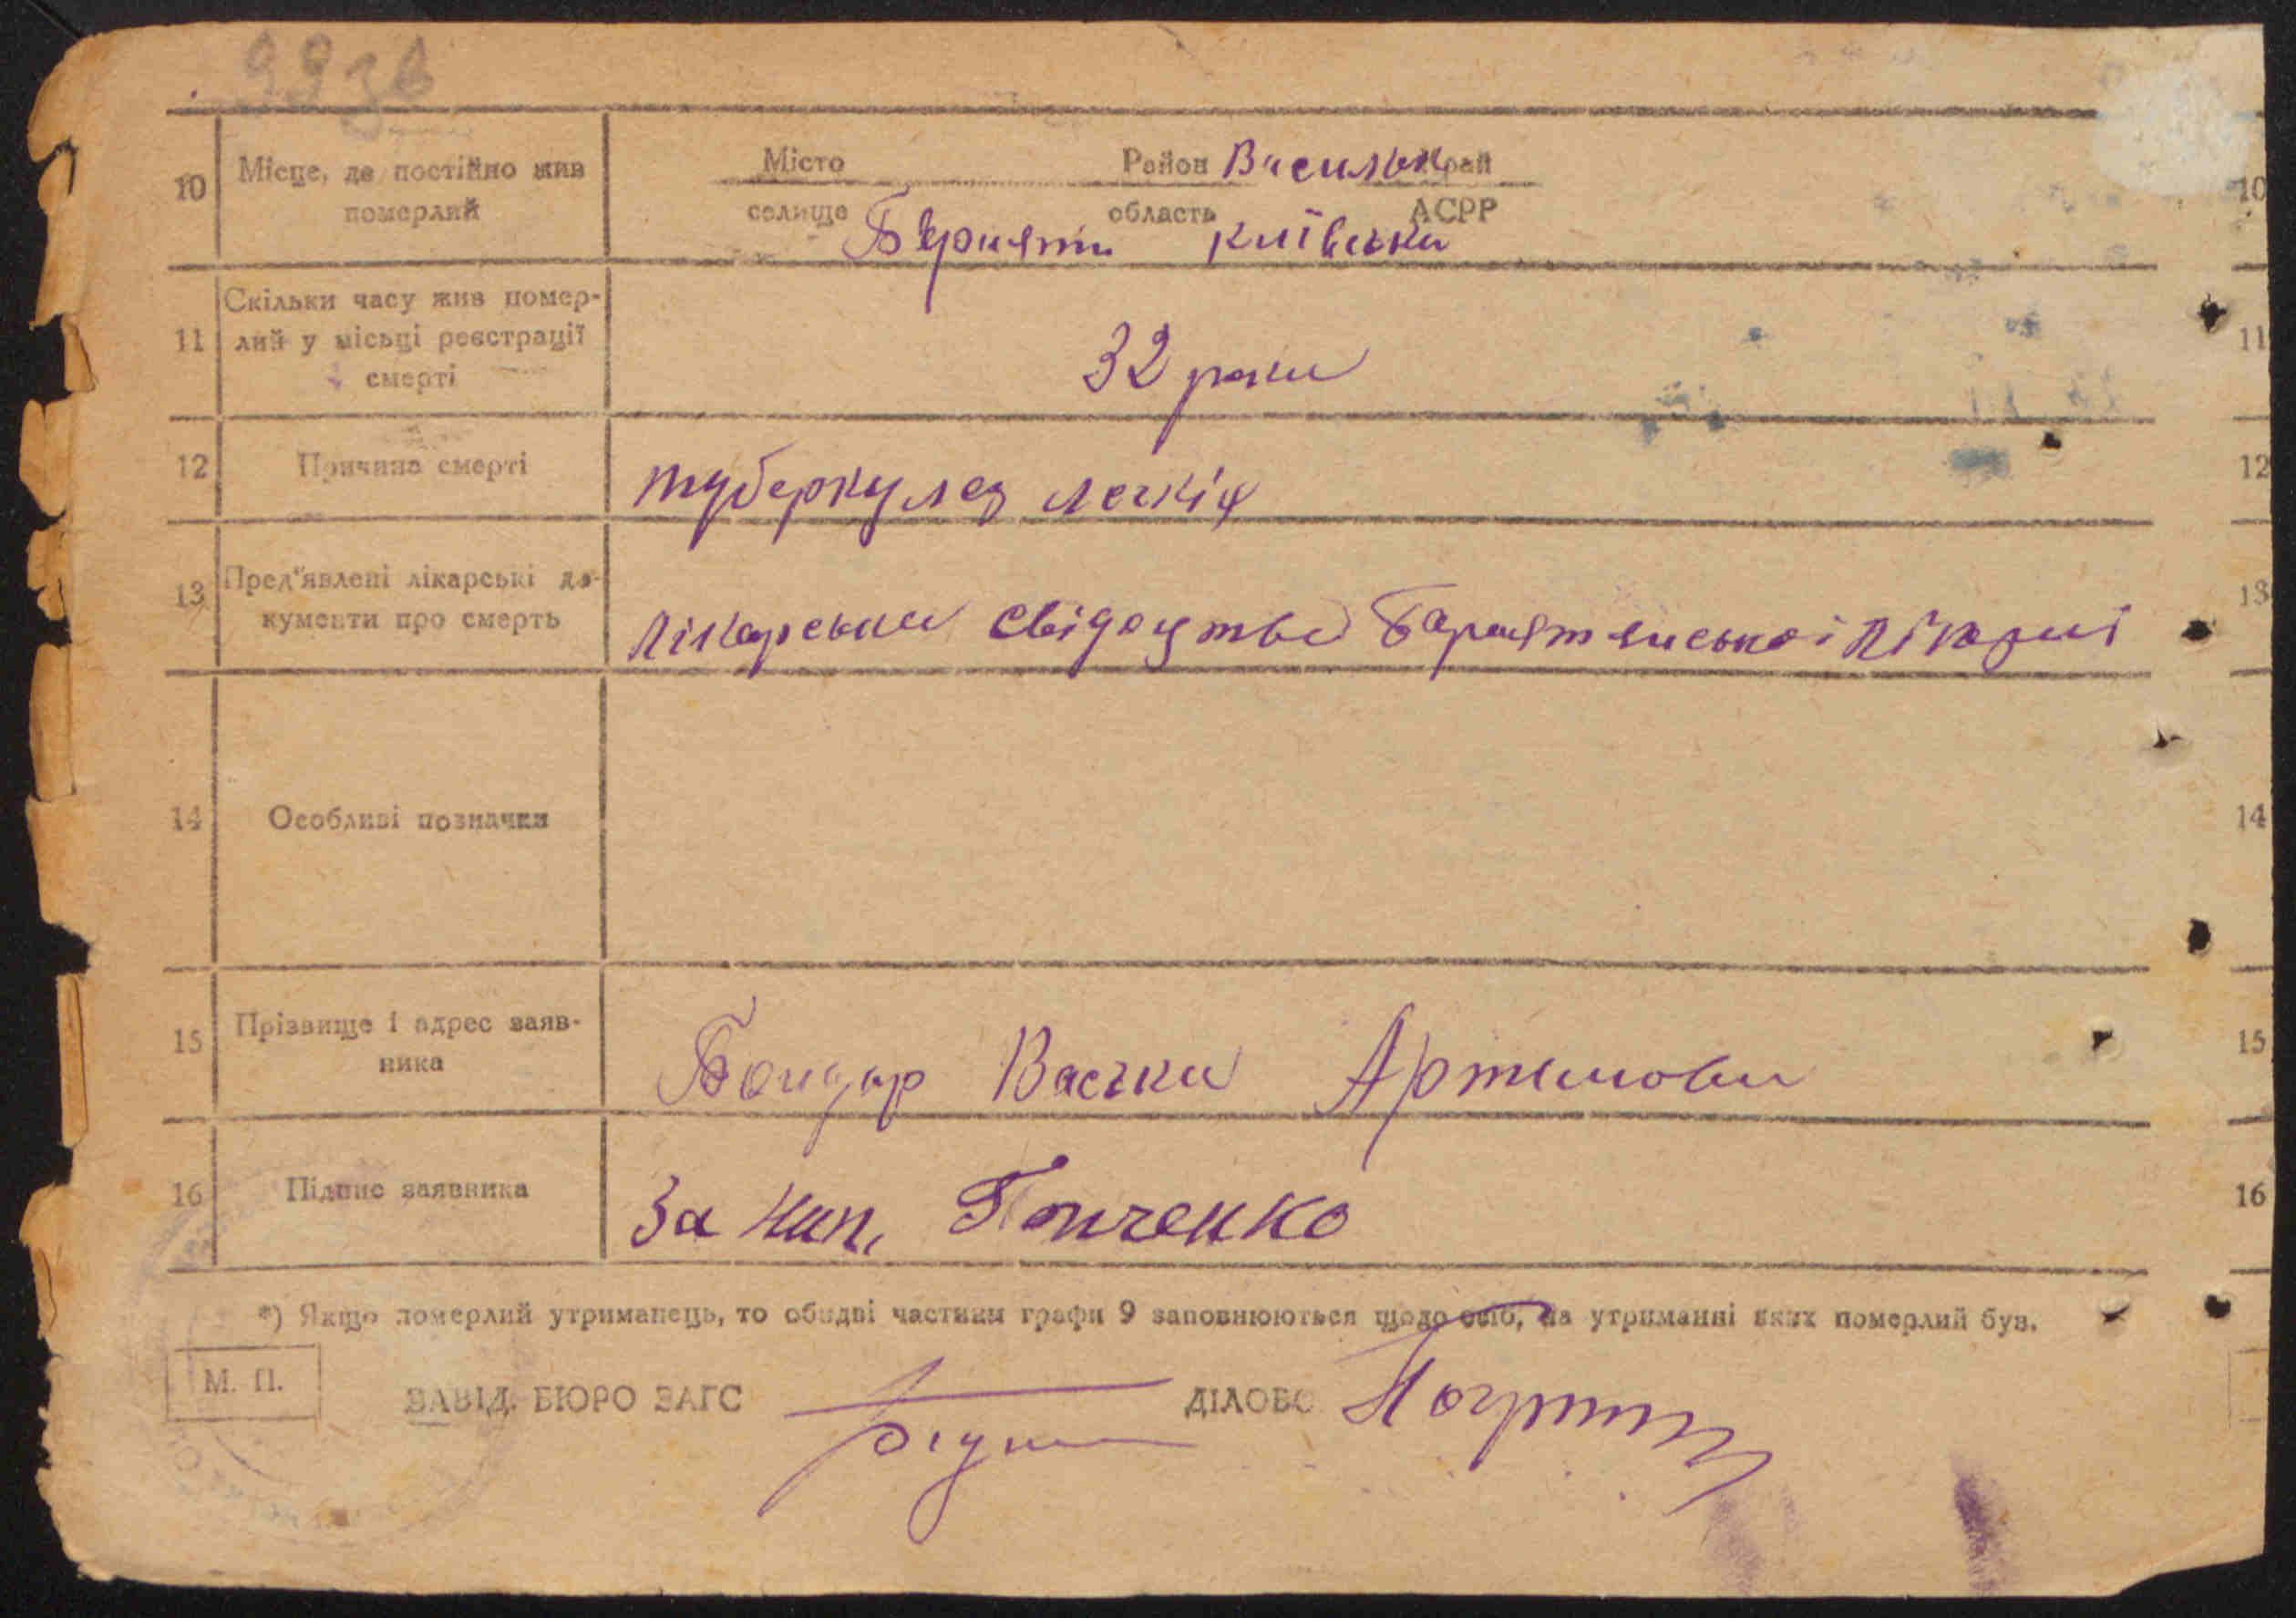 99зв
10 Місце, де постійно жив Місто Район Васильк край 10
померлий селище область АСРР
Барахти київська
Скільки часу жив помер-
11 лий у місьці реєстрації 11
смерті 32 роки
12 Причина смерті туберкулез легкіх 12
13 Пред'явлені лікарські до- 13
кументи про смерть лікарське свідоцтво Барахтянської лікарні
14 Особливі позначки 14
15 Прізвище і адрес заяв- 15
ника Бондар Васька Артемова
16 Підпис заявника За неп. 16
*) Якщо померлий утриманець, то обидві частини графи 9 заповнюються щодо осіб, на утриманні яких померлий був.
М. П. ЗАВІД. БЮРО ЗАГС ДІЛОВО